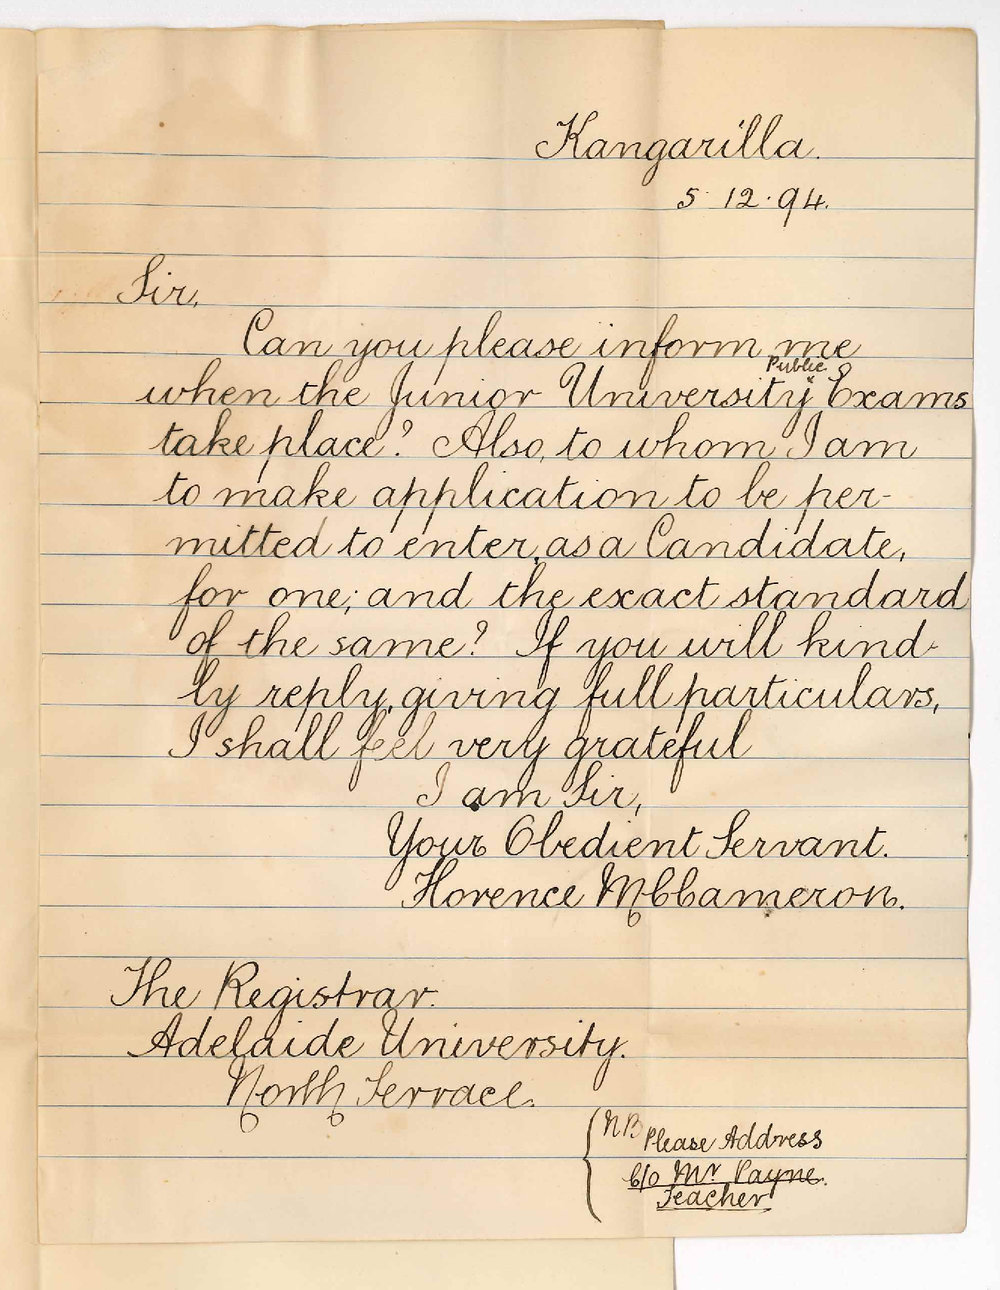 Kangarilla.
5·12·94.
Sir,
Can you please inform me
Public
when the Junior University Exams
take place? Also, to whom I am
to make application to be per-
mitted to enter, as a Candidate,
for one; and the exact standard
of the same? If you will kind-
ly reply, giving full particulars,
I shall feel very grateful
I am Sir,
Your Obedient Servant.
Florence McCameron.
The Registrar.
Adelaide University.
North Terrace.
NB Please Address
C/o Mr Payne.
Teacher